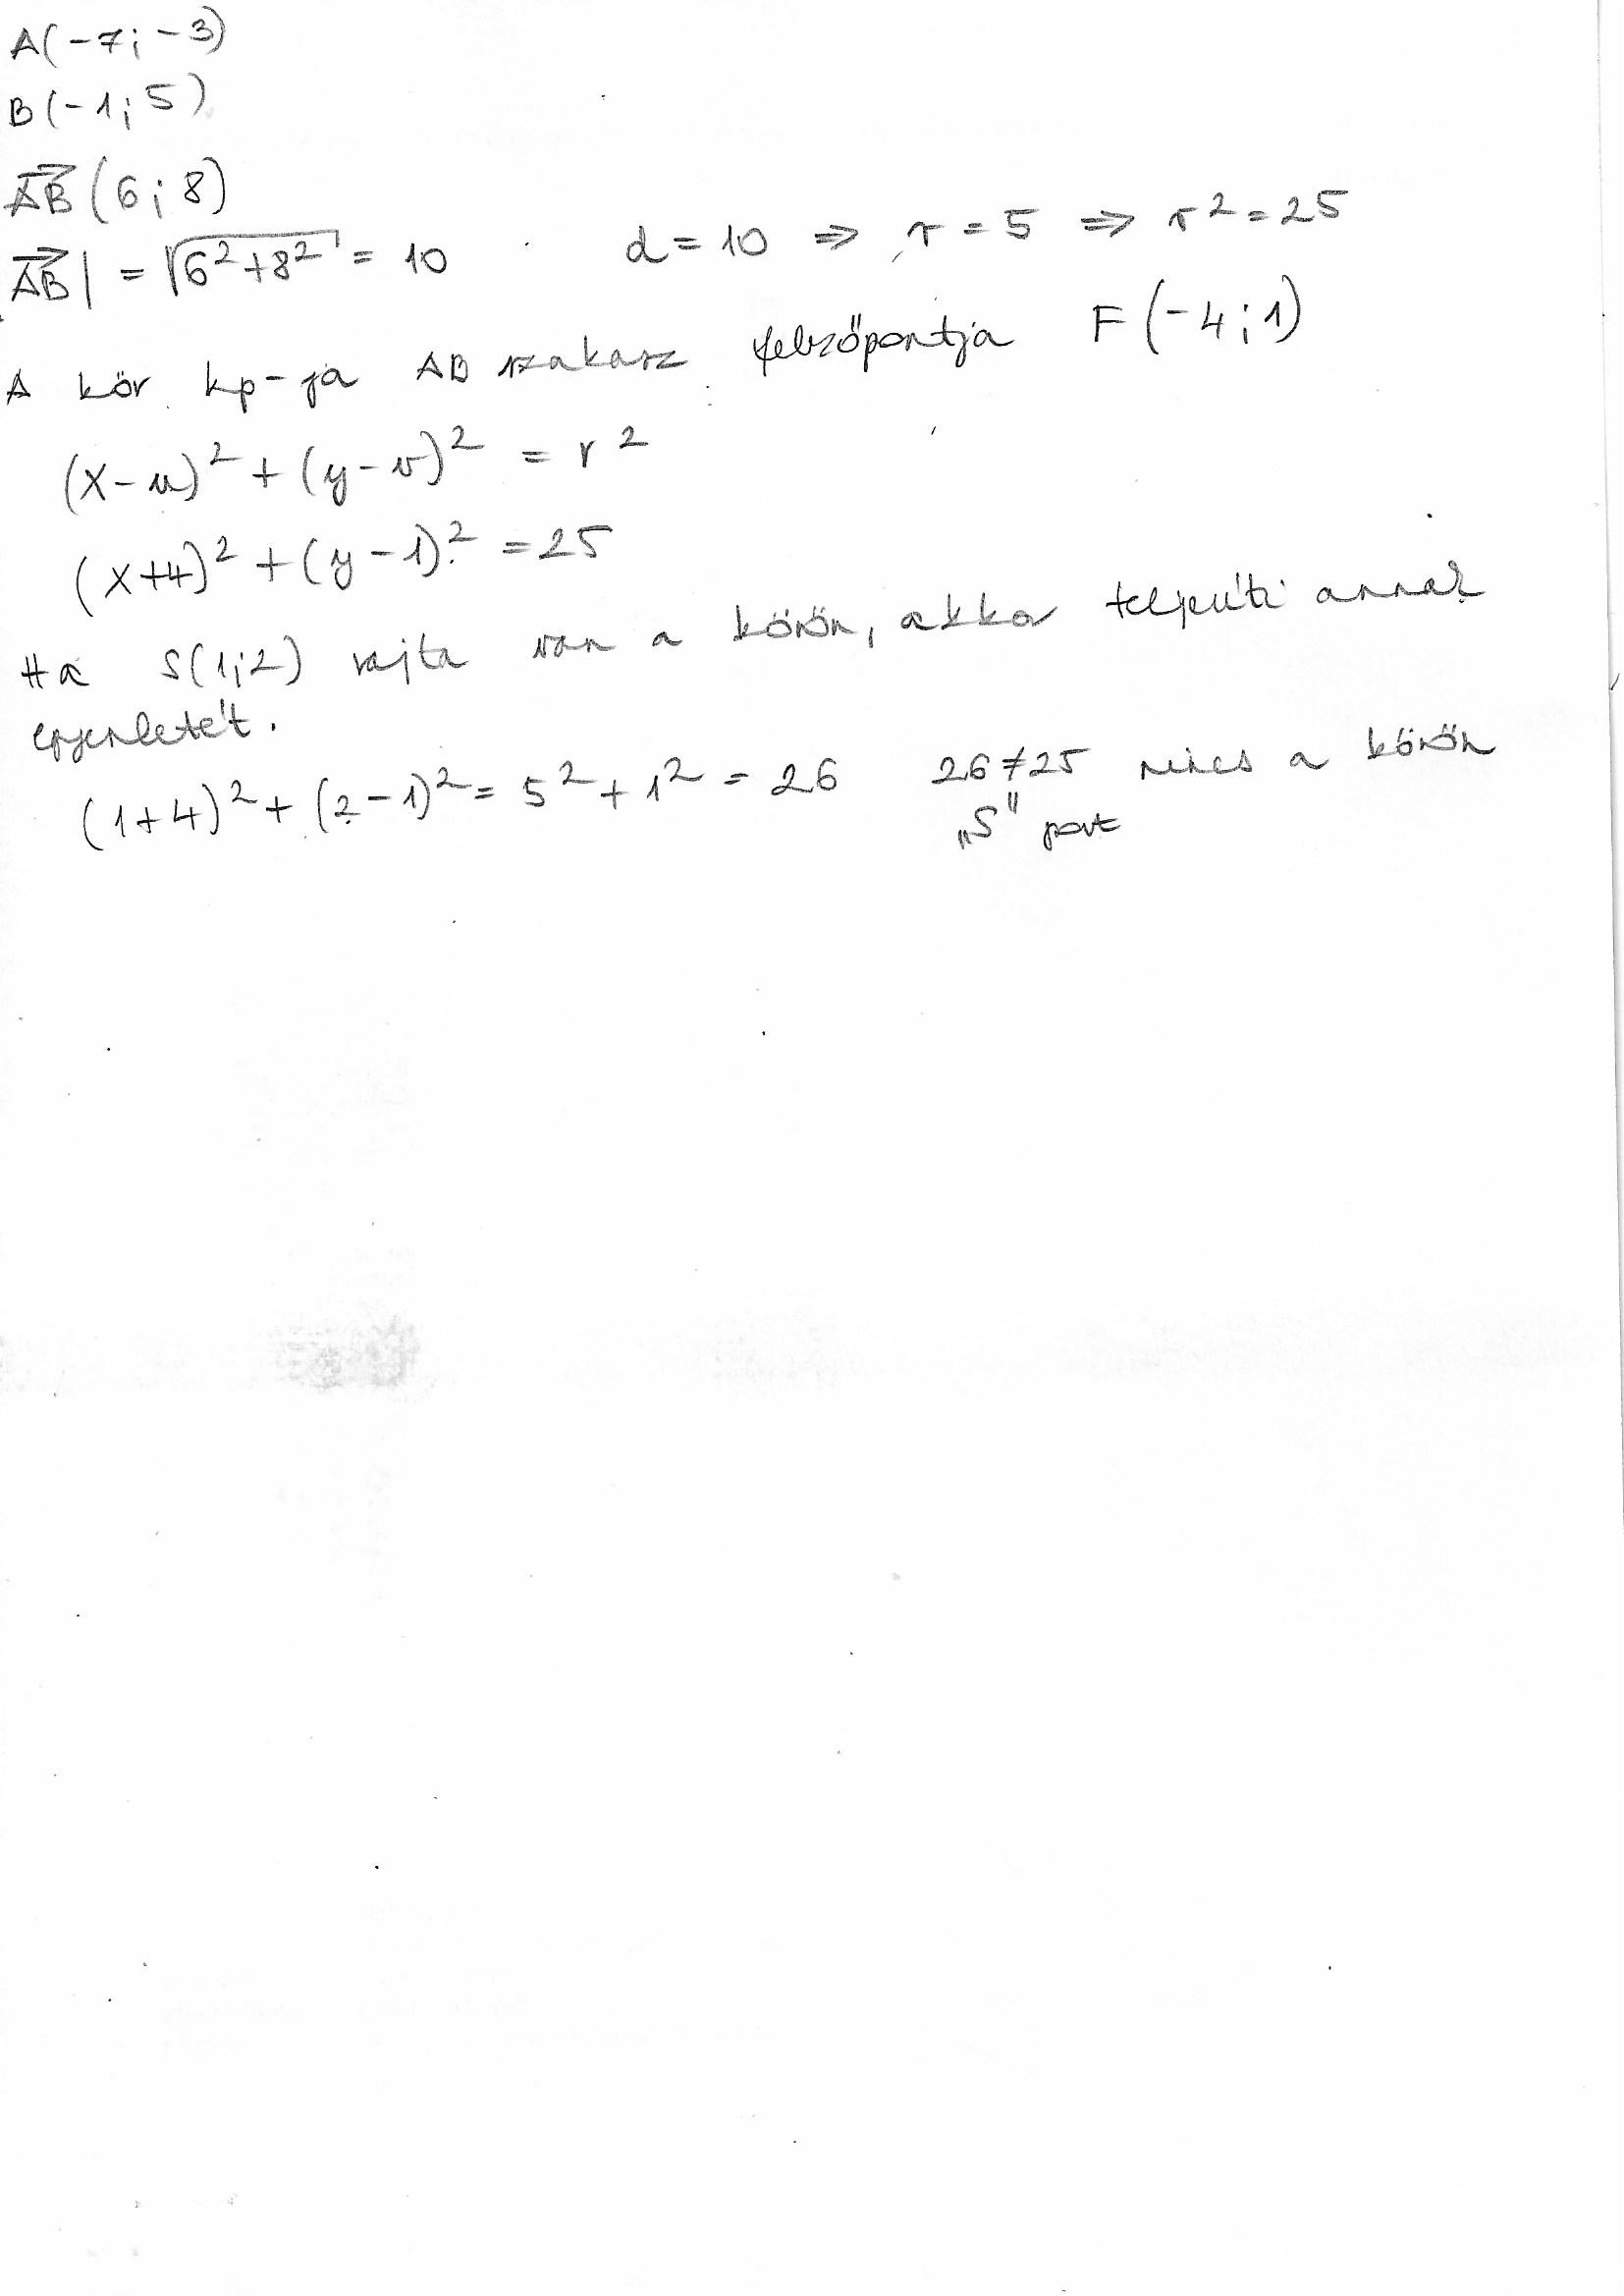 A(-7; -3)
B(-1; 5)
AB (6; 8)
AB| = √6²+8² = 10 d = 10 ⇒ r = 5 ⇒ r² = 25
A kör kp-ja AB szakasz felezőpontja F(-4; 1)
(x-u)² + (y-v)² = r²
(x+4)² + (y-1)² = 25
Ha S(1;2) rajta van a körön, akkor teljesíti annak
egyenletét.
(1+4)² + (2-1)² = 5² + 1² = 26 26≠25 nincs a körön
„S" pont